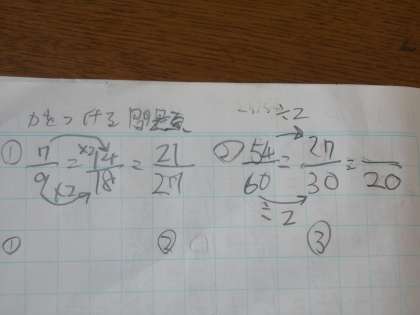 かきつける問題 ÷2
① 7/9 = ×2 14/18 = 21/27 ② 54/60 = 27/30 = /20
×2 ÷2
① ② ③